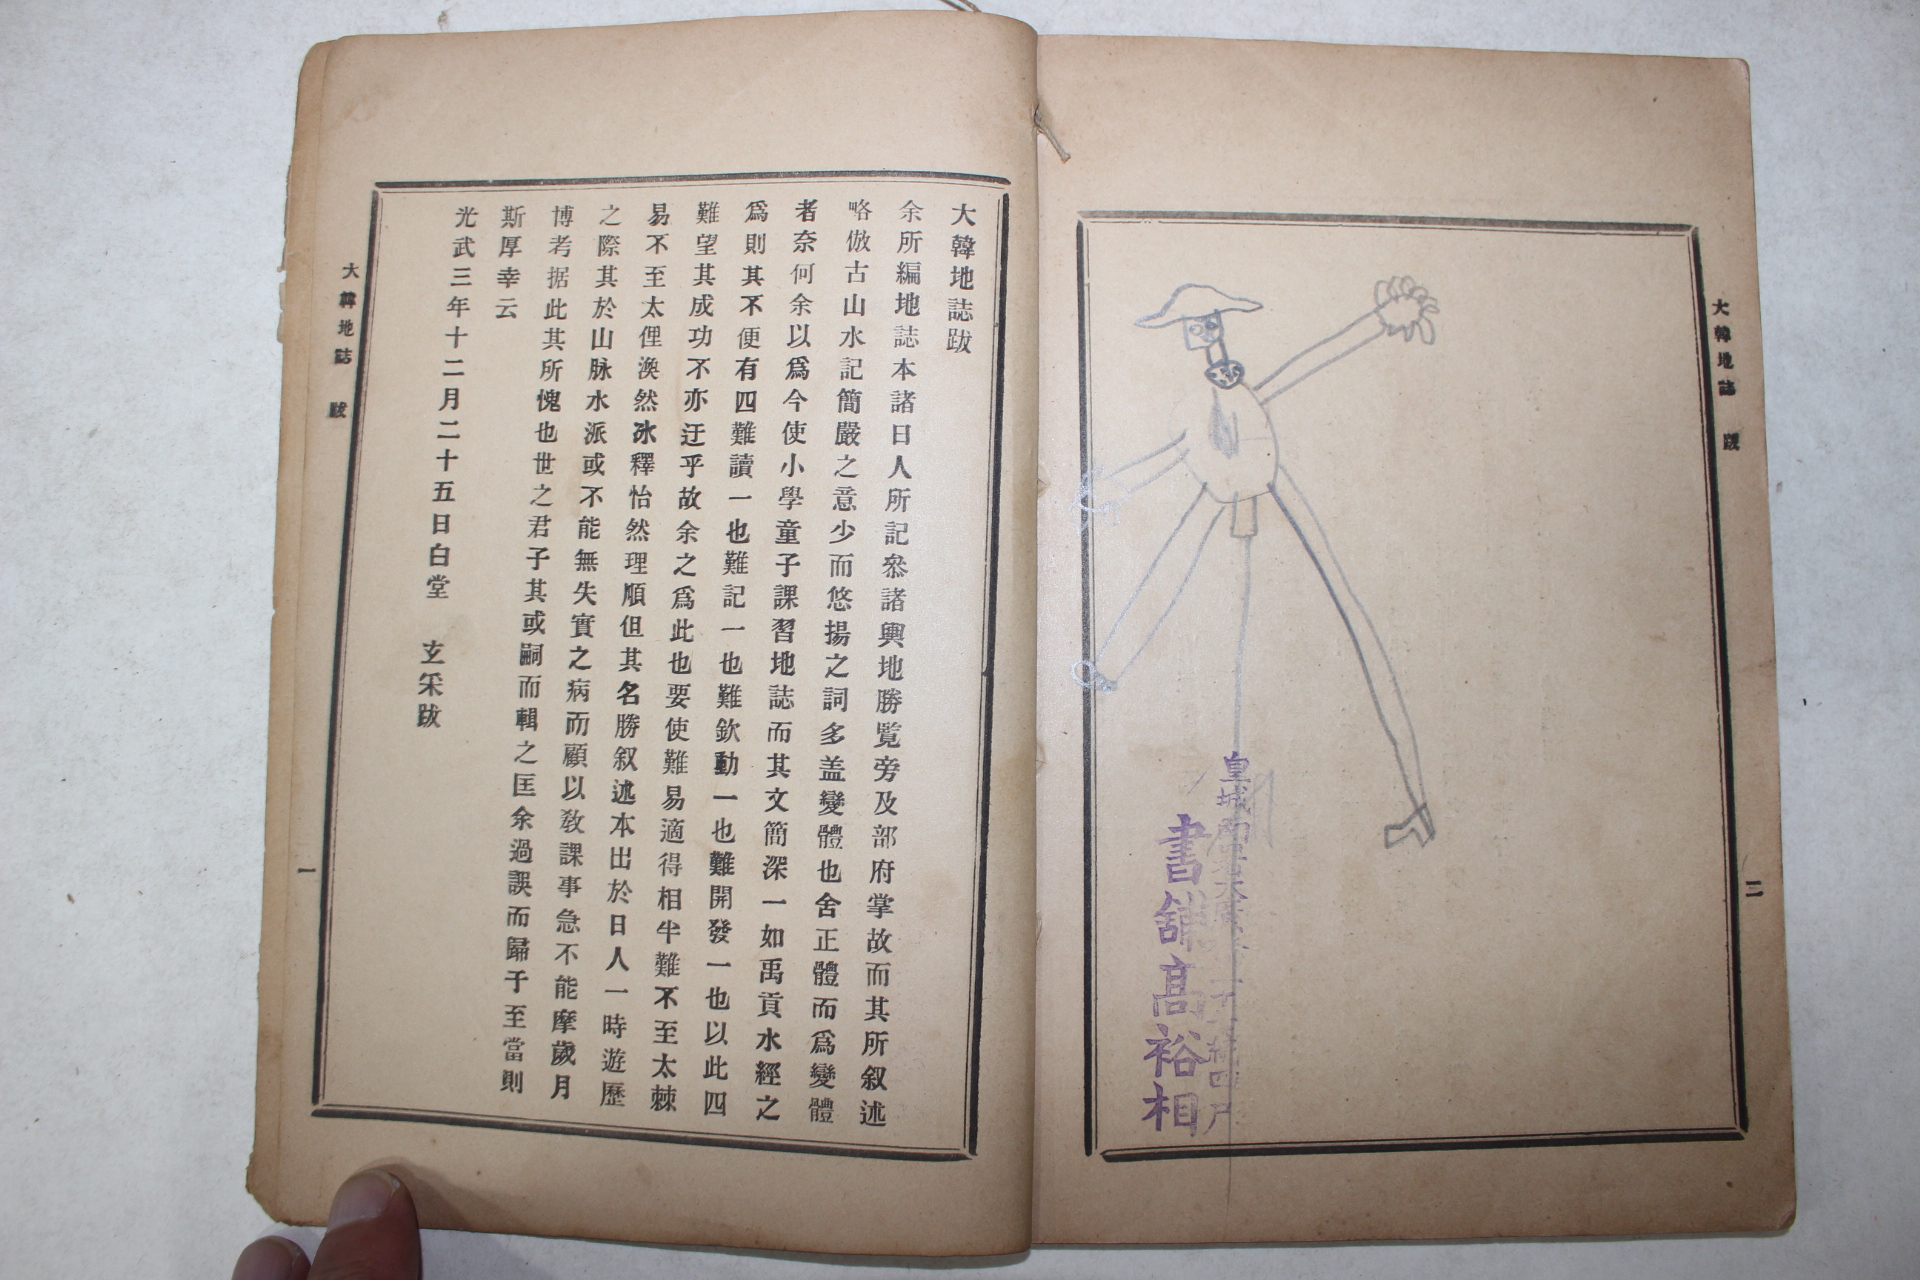 大韓地誌 跋
二
皇城
書舖高裕相
大韓地誌跋
余所編地誌本諸日人所記叅諸輿地勝覧旁及部府掌故而其所叙述
略倣古山水記簡嚴之意少而悠揚之詞多盖變體也舍正體而爲變體
者奈何余以爲今使小學童子課習地誌而其文簡深一如禹貢水經之
爲則其不便有四難讀一也難記一也難欽動一也難開發一也以此四
難望其成功不亦迂乎故余之爲此也要使難易適得相半難不至太棘
易不至太俚渙然氷釋怡然理順但其名勝叙述本出於日人一時遊歷
之際其於山脉水派或不能無失實之病而顧以敎課事急不能摩歲月
博考据此其所愧也世之君子其或嗣而輯之匡余過誤而歸于至當則
斯厚幸云
光武三年十二月二十五日白堂 玄采跋
大韓地誌 跋
一